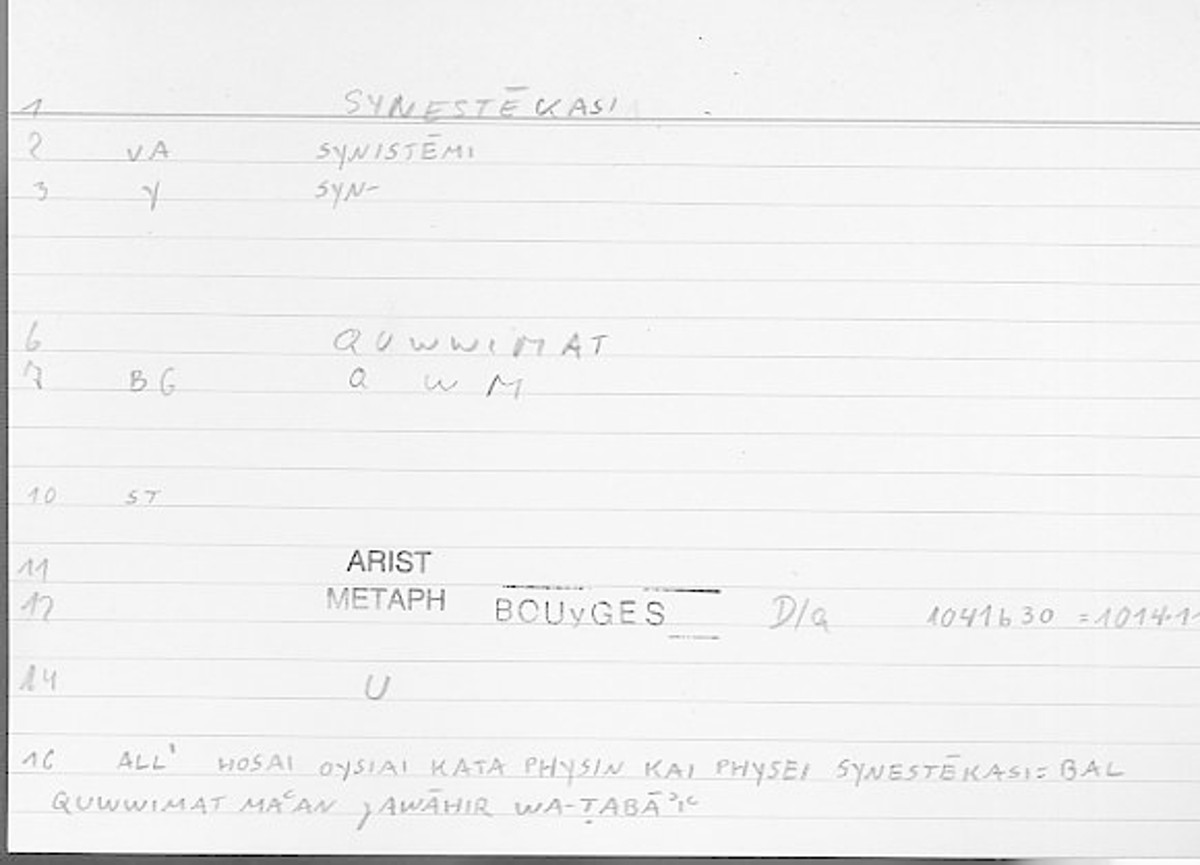 1 SYNESTĒKASI
2 VA SYNISTĒMI
3 Y SYN-
6 QUWWIMAT
7 BG Q W M
10 ST
11 ARIST
12 METAPH BOUyGES D/a 1041b30 =1014.1
14 U
16 ALL' HOSAI OYSIAI KATA PHYSIN KAI PHYSEI SYNESTĒKASI: BAL
QUWWIMAT MAᶜAN ȷAWĀHIR WA-ṬABĀʾIᶜ